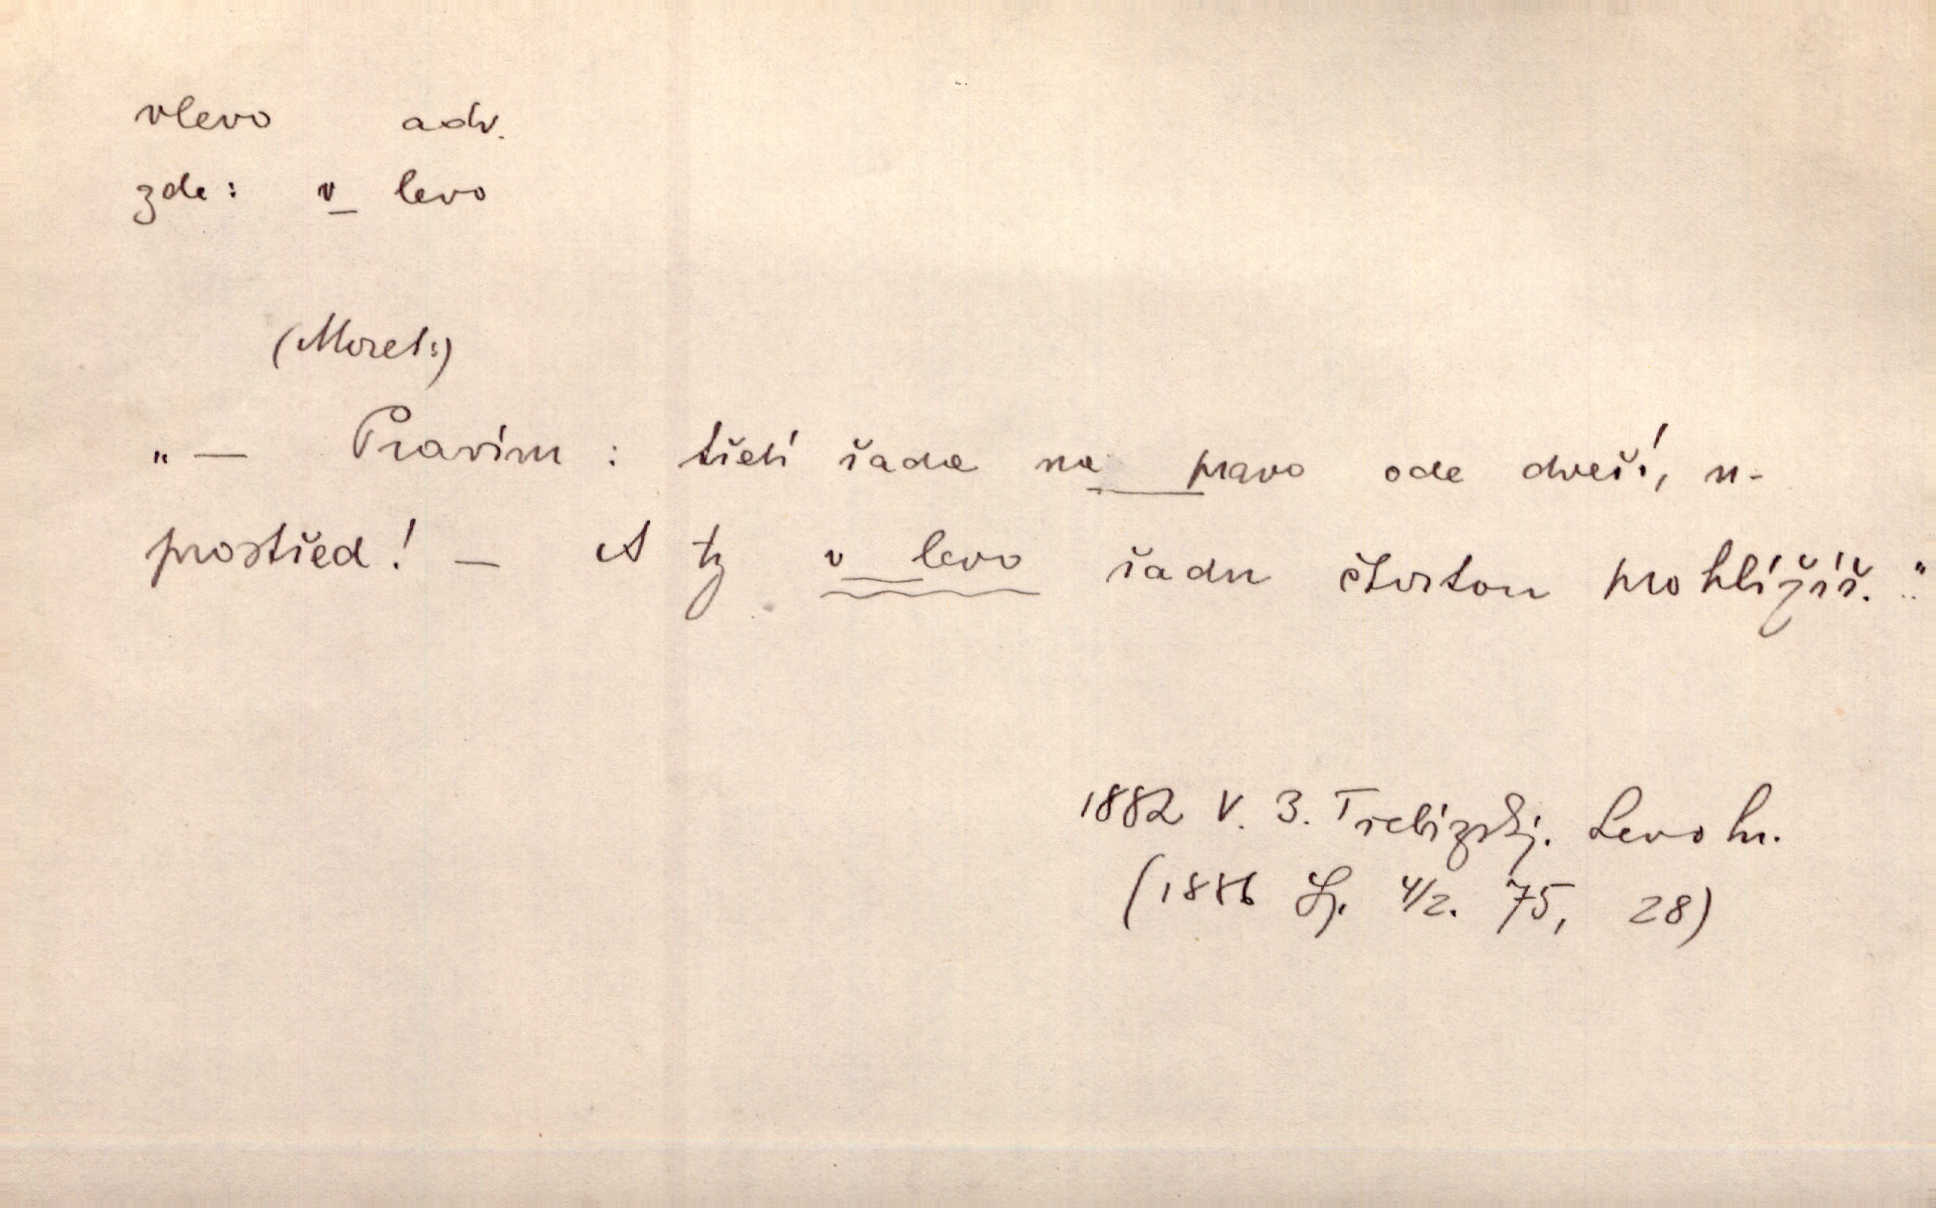 vlevo adv.
zde: v levo
(Morel:)
„— Pravím : třetí řada na pravo ode dveří, u-
prostřed! — A ty v levo řadu čtvrtou prohlížíš."
1882 V. B. Třebízský. Levohr.
(1886 Sp. 4/2. 75, 28)